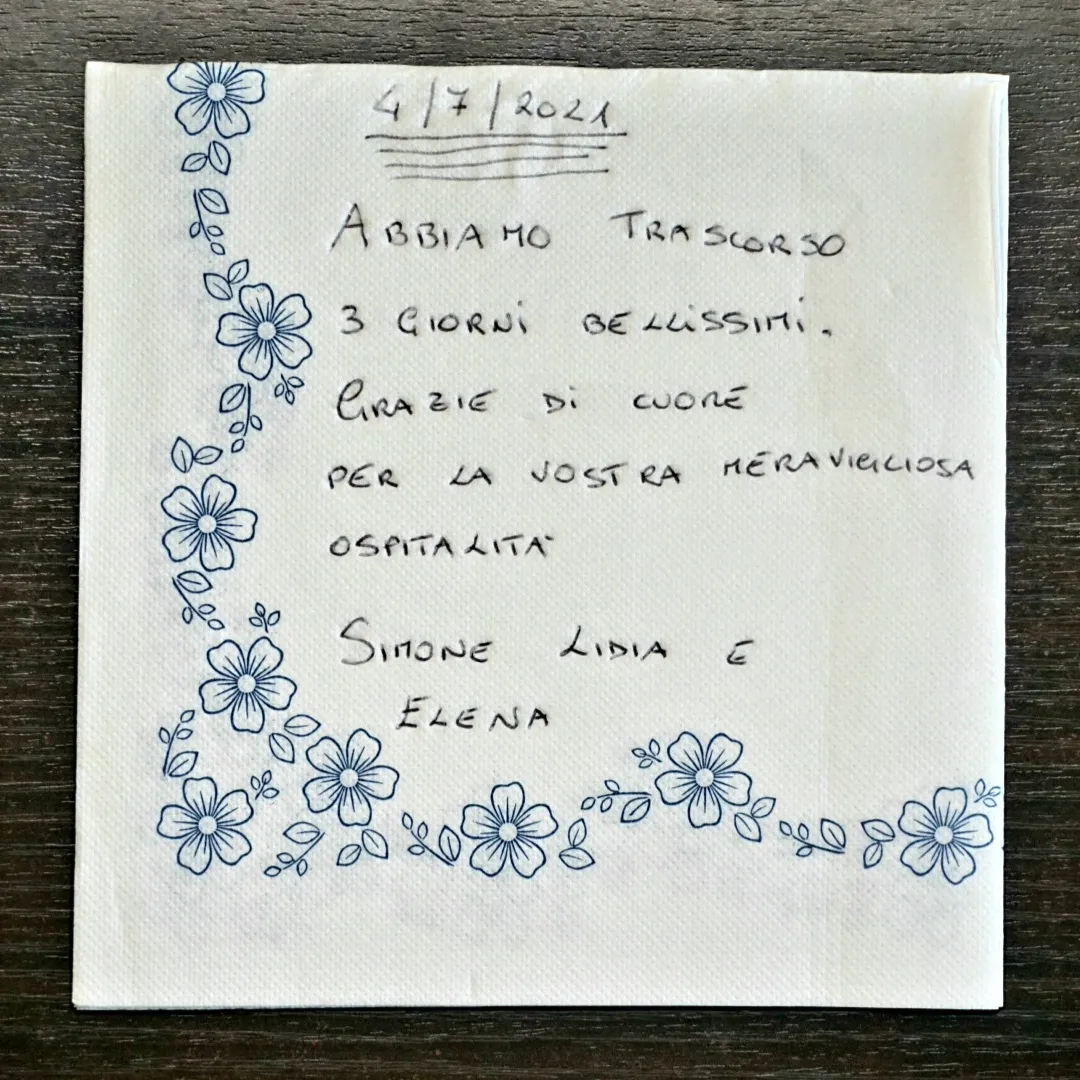 4/7/2021
ABBIAMO TRASCORSO
3 GIORNi BELLiSSIMi.
GRAZIE Di CUORE
PER LA VOSTRA MERAVIGLIOSA
OSPITALITA'
SIMONE LIDIA E
ELENA